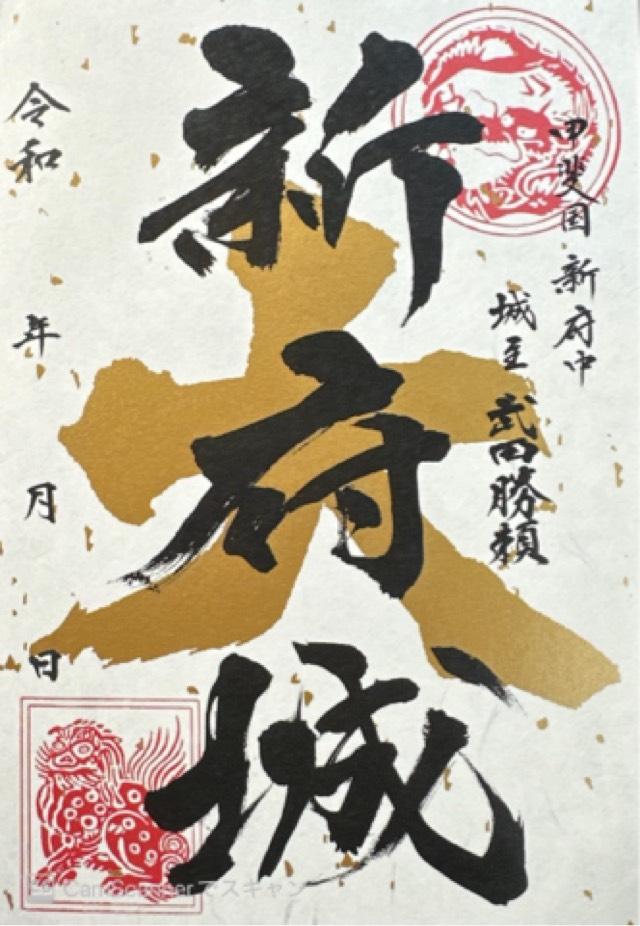 甲斐国 新府中
城主 武田勝頼
新府城
大
令和 年 月 日
CamScanner でスキャン